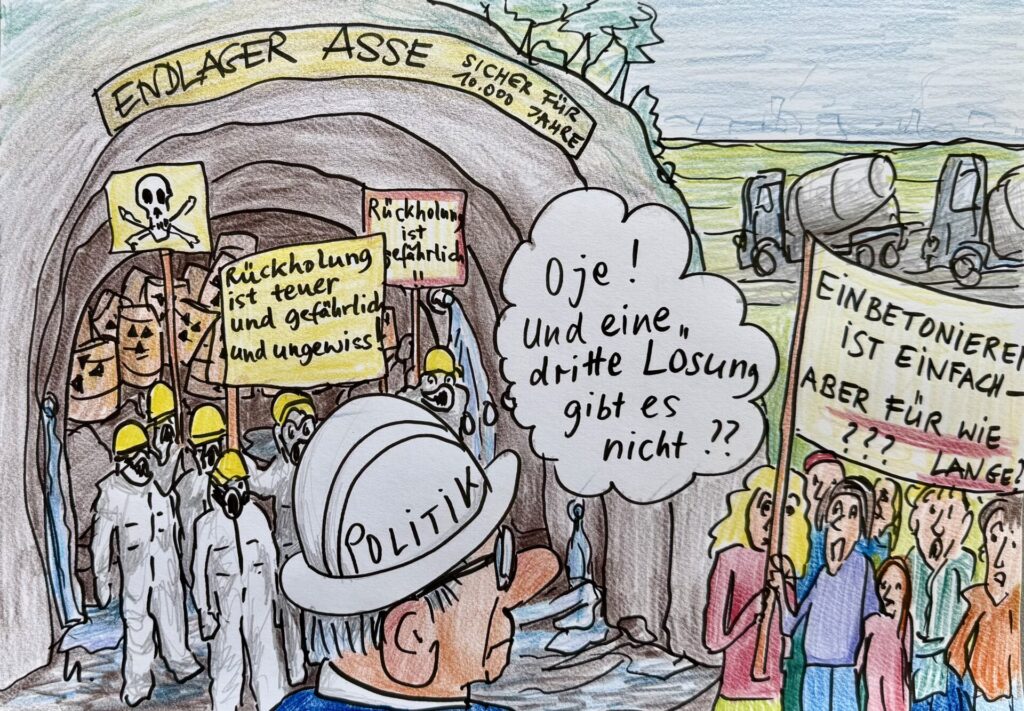 ENDLAGER ASSE SICHER FÜR
10.000 JAHRE
Rückholung
ist
gefährlich
!!
Rückholung
ist teuer
und gefährlich
und ungewiss!
Oje!
Und eine
"dritte Lösung
gibt es
nicht ??
POLITIK
EINBETONIEREN
IST EINFACH –
ABER FÜR WIE
??? LANGE?